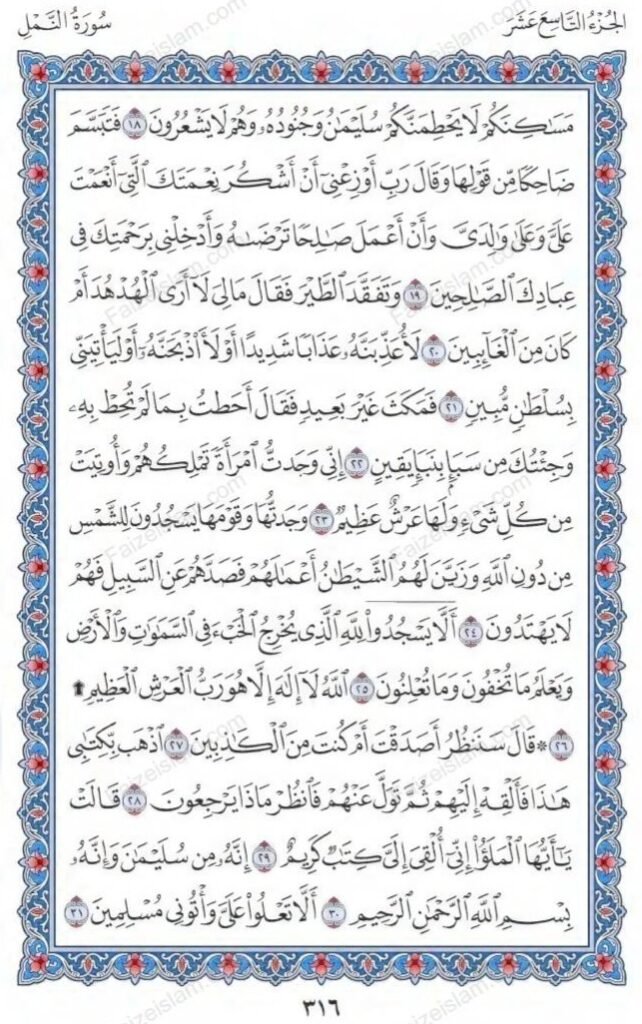 الجُزْءُ التَّاسِعَ عَشَرَ
سُورَةُ النَّمْل
مَسَٰكِنَكُمْ لَا يَحْطِمَنَّكُمْ سُلَيْمَٰنُ وَجُنُودُهُۥ وَهُمْ لَا يَشْعُرُونَ ١٨ فَتَبَسَّمَ
ضَاحِكًا مِّن قَوْلِهَا وَقَالَ رَبِّ أَوْزِعْنِىٓ أَنْ أَشْكُرَ نِعْمَتَكَ ٱلَّتِىٓ أَنْعَمْتَ
عَلَىَّ وَعَلَىٰ وَٰلِدَىَّ وَأَنْ أَعْمَلَ صَٰلِحًا تَرْضَىٰهُ وَأَدْخِلْنِى بِرَحْمَتِكَ فِى
عِبَادِكَ ٱلصَّٰلِحِينَ ١٩ وَتَفَقَّدَ ٱلطَّيْرَ فَقَالَ مَا لِىَ لَآ أَرَى ٱلْهُدْهُدَ أَمْ
كَانَ مِنَ ٱلْغَآئِبِينَ ٢٠ لَأُعَذِّبَنَّهُۥ عَذَابًا شَدِيدًا أَوْ لَأَا۟ذْبَحَنَّهُۥٓ أَوْ لَيَأْتِيَنِّى
بِسُلْطَٰنٍ مُّبِينٍ ٢١ فَمَكَثَ غَيْرَ بَعِيدٍ فَقَالَ أَحَطتُ بِمَا لَمْ تُحِطْ بِهِۦ
وَجِئْتُكَ مِن سَبَإٍۭ بِنَبَإٍ يَقِينٍ ٢٢ إِنِّى وَجَدتُّ ٱمْرَأَةً تَمْلِكُهُمْ وَأُوتِيَتْ
مِن كُلِّ شَىْءٍ وَلَهَا عَرْشٌ عَظِيمٌ ٢٣ وَجَدتُّهَا وَقَوْمَهَا يَسْجُدُونَ لِلشَّمْسِ
مِن دُونِ ٱللَّهِ وَزَيَّنَ لَهُمُ ٱلشَّيْطَٰنُ أَعْمَٰلَهُمْ فَصَدَّهُمْ عَنِ ٱلسَّبِيلِ فَهُمْ
لَا يَهْتَدُونَ ٢٤ أَلَّا يَسْجُدُوا۟ لِلَّهِ ٱلَّذِى يُخْرِجُ ٱلْخَبْءَ فِى ٱلسَّمَٰوَٰتِ وَٱلْأَرْضِ
وَيَعْلَمُ مَا تُخْفُونَ وَمَا تُعْلِنُونَ ٢٥ ٱللَّهُ لَآ إِلَٰهَ إِلَّا هُوَ رَبُّ ٱلْعَرْشِ ٱلْعَظِيمِ
٢٦ * قَالَ سَنَنظُرُ أَصَدَقْتَ أَمْ كُنتَ مِنَ ٱلْكَٰذِبِينَ ٢٧ ٱذْهَب بِّكِتَٰبِى
هَٰذَا فَأَلْقِهْ إِلَيْهِمْ ثُمَّ تَوَلَّ عَنْهُمْ فَٱنظُرْ مَاذَا يَرْجِعُونَ ٢٨ قَالَتْ
يَٰٓأَيُّهَا ٱلْمَلَؤُا۟ إِنِّىٓ أُلْقِىَ إِلَىَّ كِتَٰبٌ كَرِيمٌ ٢٩ إِنَّهُۥ مِن سُلَيْمَٰنَ وَإِنَّهُۥ
بِسْمِ ٱللَّهِ ٱلرَّحْمَٰنِ ٱلرَّحِيمِ ٣٠ أَلَّا تَعْلُوا۟ عَلَىَّ وَأْتُونِى مُسْلِمِينَ ٣١
٣١٦
Faizeislam.com